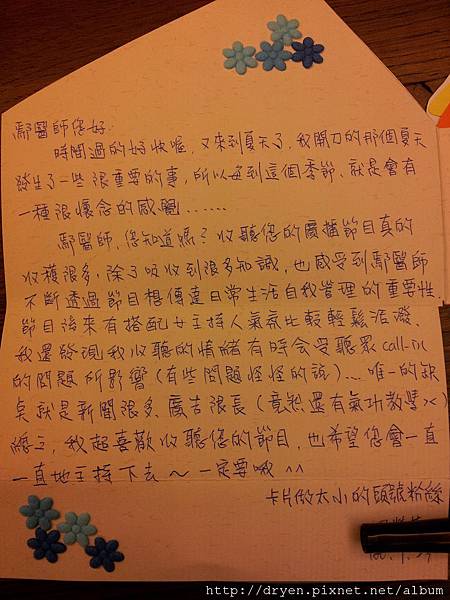 鄢醫師您好:
時間過的好快喔，又來到夏天了，我開刀的那個夏天
發生了一些很重要的事，所以每到這個季節，就是會有
一種很懷念的感覺......
鄢醫師，您知道嗎？收聽您的廣播節目真的
收穫很多，除了吸收到很多知識，也感受到鄢醫師
不斷透過節目想傳達日常生活自我管理的重要性，
節目後來有搭配女主持人氣氛比較輕鬆活潑、
我還發現我收聽的情緒有時会受聽眾call-in
的問題所影響(有些問題怪怪的說)... 唯一的缺
點就是新聞很多、廣告很長(竟然還有氣功教學××)
總之，我超喜歡收聽您的節目，也希望您會一直
一直地主持下去～一定要呦^^
卡片做太小的頭號粉絲
http://dryen.pixnet.net/album